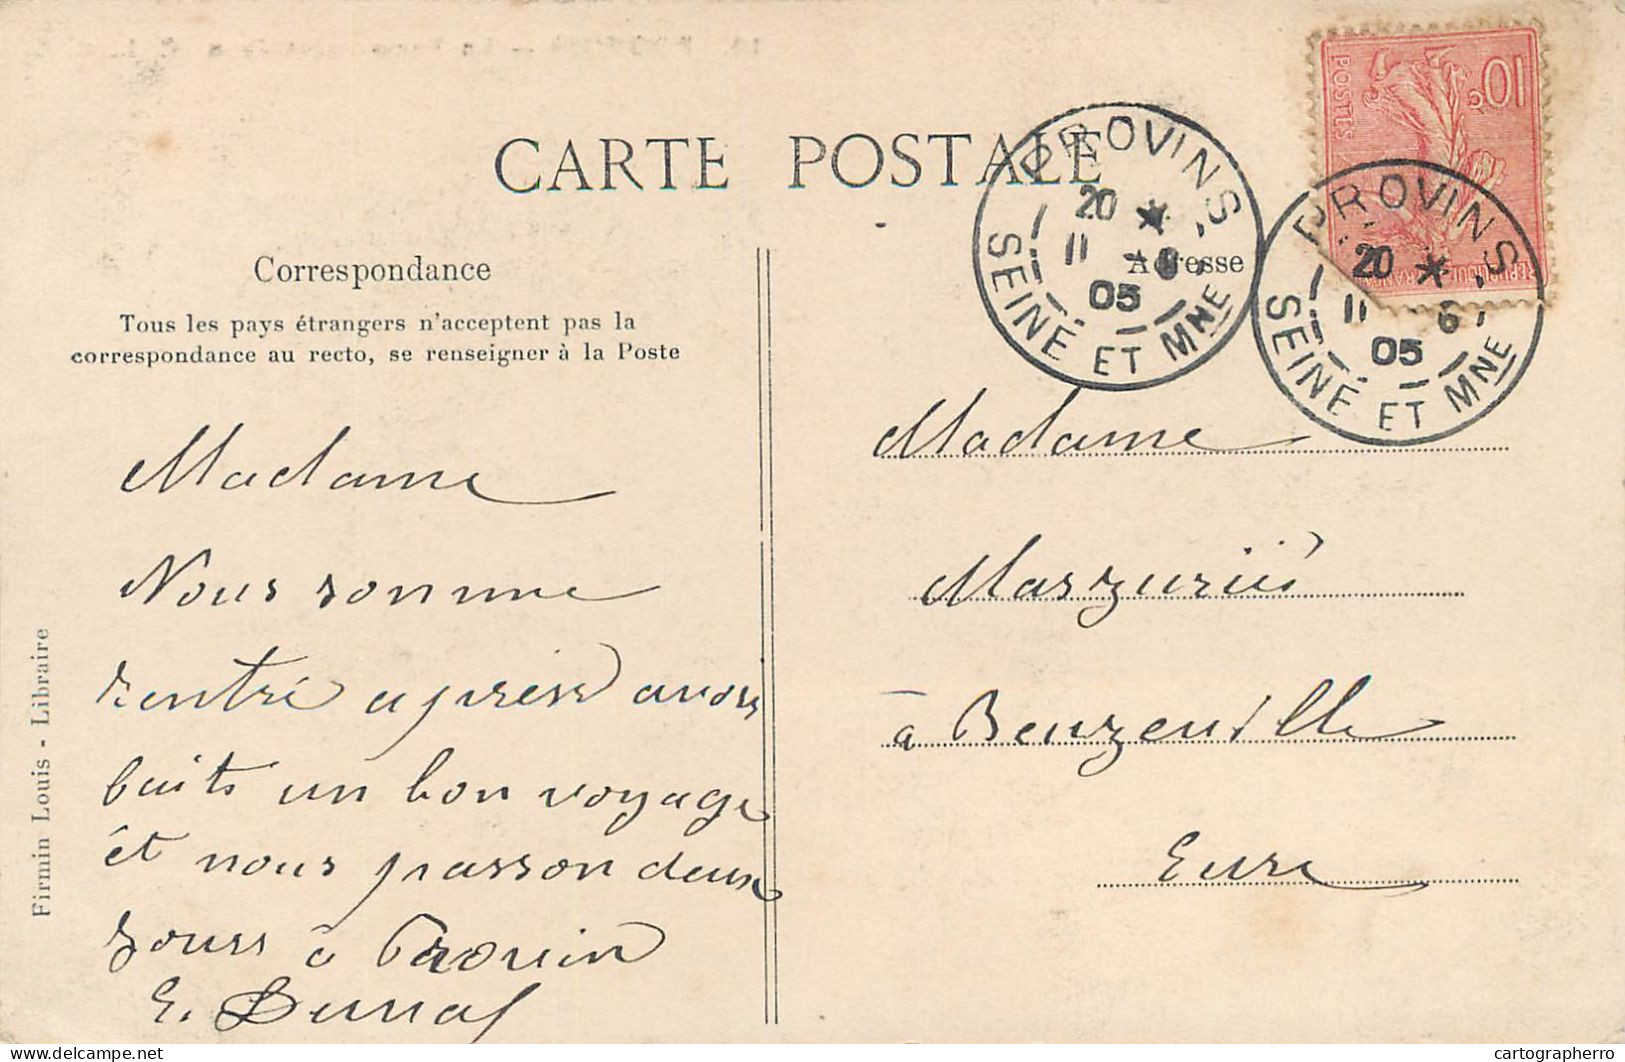 CARTE POSTALE
Correspondance
Tous les pays étrangers n'acceptent pas la
correspondance au recto, se renseigner à la Poste
Madame
Nous somme
rentré après avoir
faits un bon voyage
et nous passon deux
jours à Provin
E. Dunal
Firmin Louis - Librairie
Adresse
PROVINS
20 *
11 -6
05
SEINE ET MNE
PROVINS
20 *
11 6
05
SEINE ET MNE
10c
POSTES
Madame
à Beuzeville
Eure
delcampe.net
cartographerro